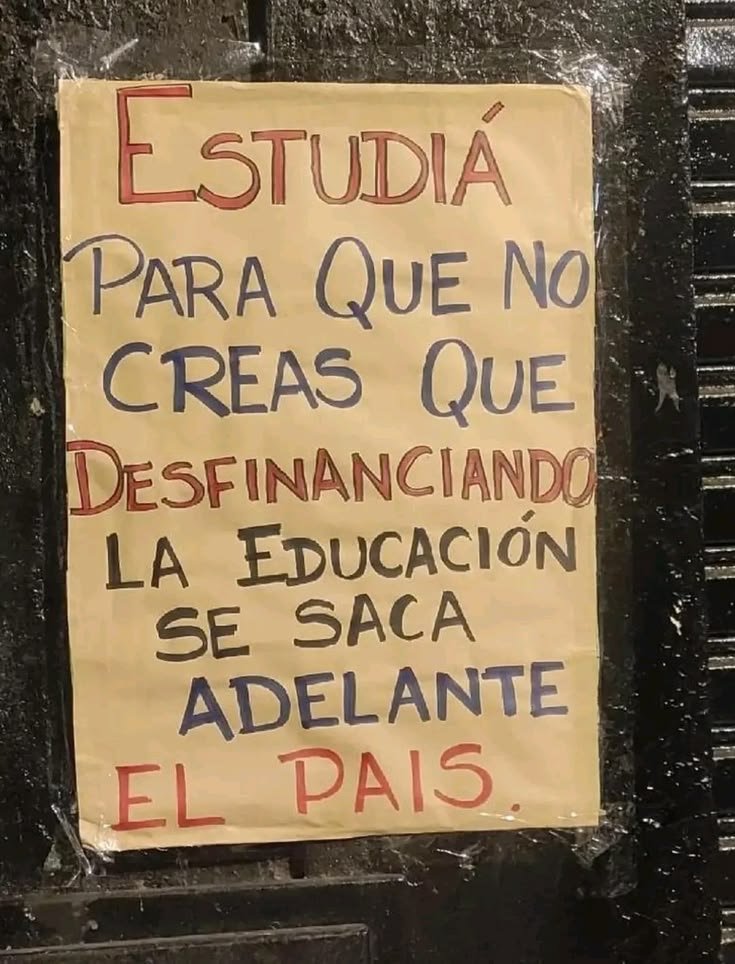 ESTUDIÁ
PARA QUE NO
CREAS QUE
DESFINANCIANDO
LA EDUCACIÓN
SE SACA
ADELANTE
EL PAIS.